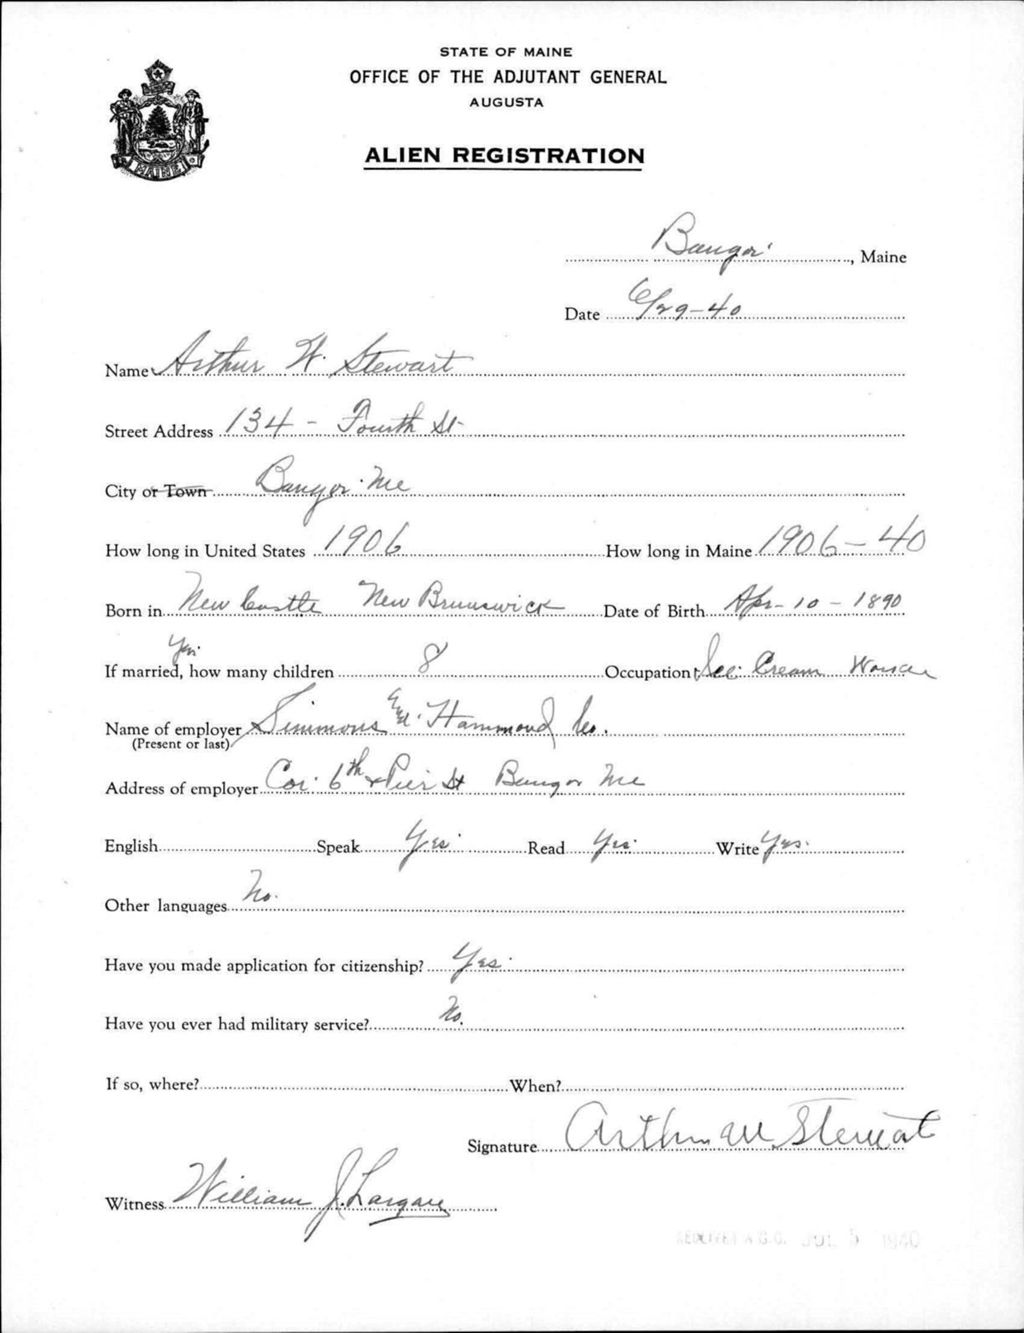 STATE OF MAINE
OFFICE OF THE ADJUTANT GENERAL
AUGUSTA
ALIEN REGISTRATION
MAINE
Bangor, Maine
Date 6/29-40
Name Arthur W. Stewart
Street Address 134 - Fourth St
City or Town Bangor Me
How long in United States 1906 How long in Maine 1906-40
Born in New Castle New Brunswick Date of Birth Apr-10-1890
Yes.
If married, how many children 8 Occupation Ice Cream
Name of employer Simmons and Hammond Co.
(Present or last)
Address of employer Cor. 6th + Pier St Bangor Me
English Speak Yes Read Yes Write Yes.
Other languages No.
Have you made application for citizenship? Yes.
Have you ever had military service? No.
If so, where? When?
Signature Arthur W Stewart
Witness William J.
RECEIVED A.G.O. JUL 5 1940